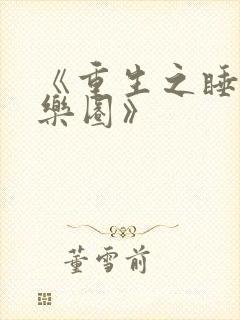 《重生之睡
樂園》
董雪前